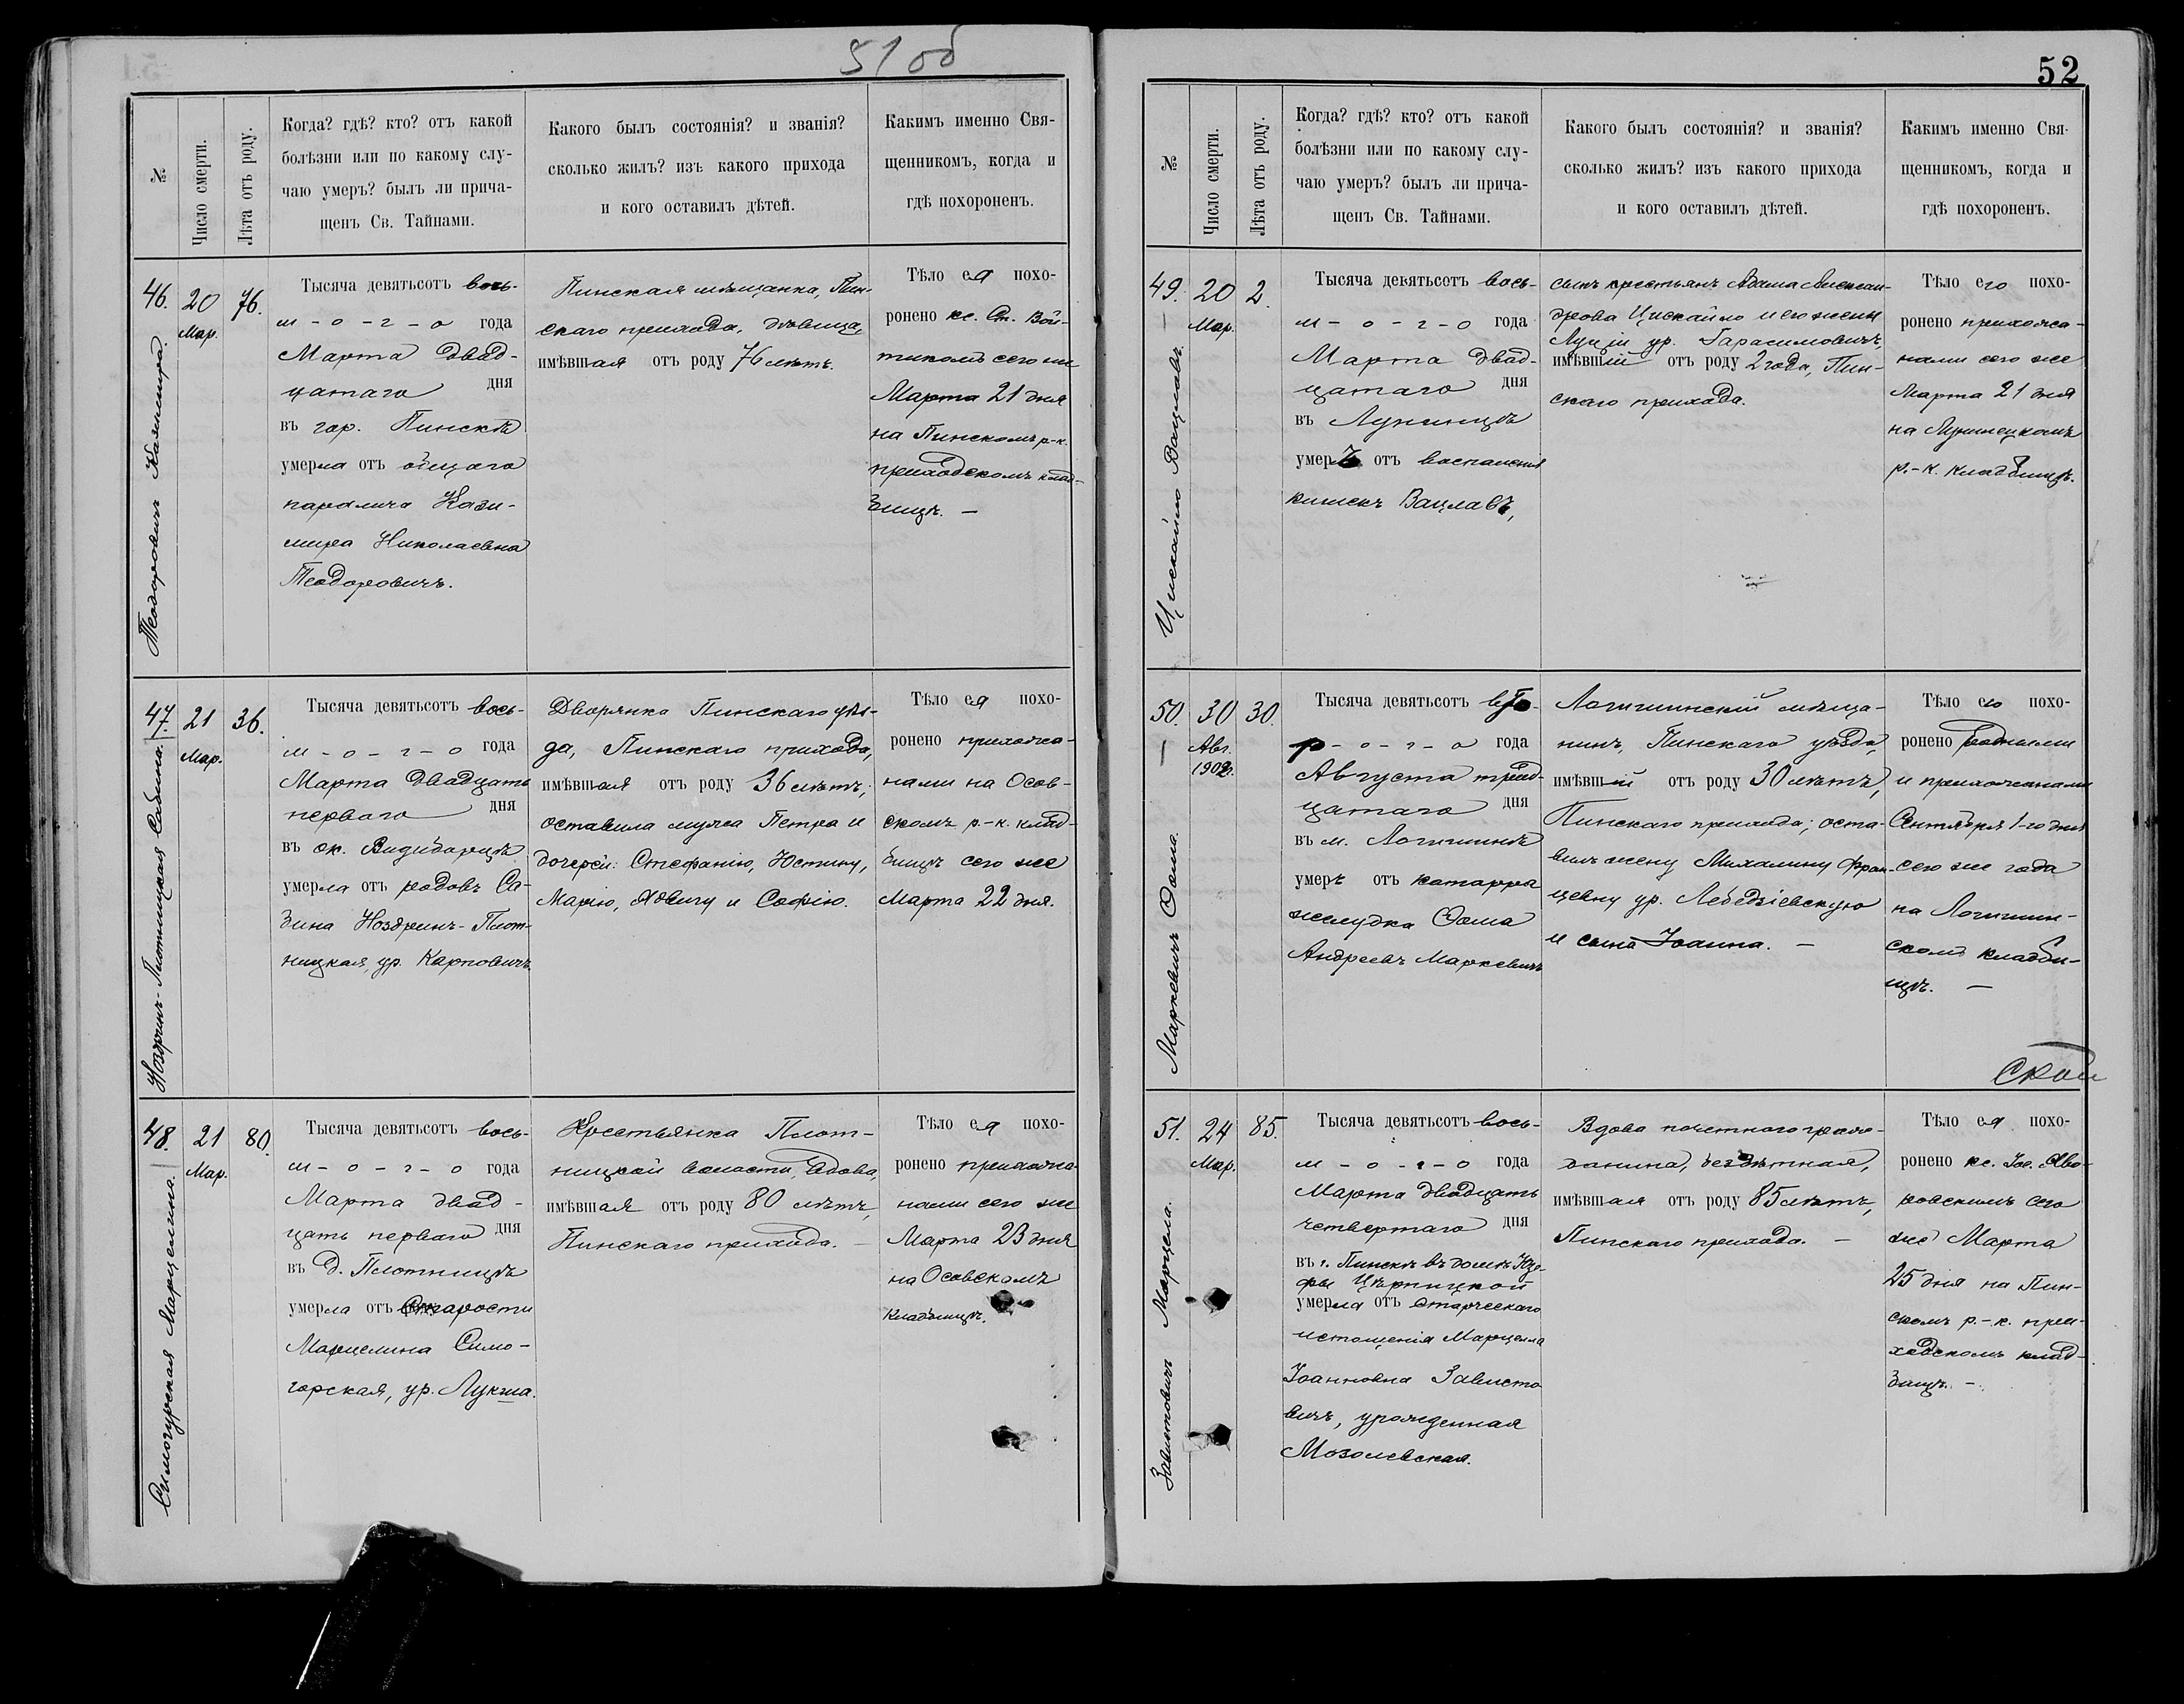 51об
№
Число смерти.
Лѣта отъ роду.
Когда? гдѣ? кто? отъ какой
болѣзни или по какому слу-
чаю умеръ? былъ ли прича-
щенъ Св. Тайнами.
Какого былъ состоянія? и званія?
сколько жилъ? изъ какого прихода
и кого оставилъ дѣтей.
Какимъ именно Свя-
щенникомъ, когда и
гдѣ похороненъ.
46.
Теодоровичъ Казимира.
20
Мар.
76.
Тысяча девятьсотъ вось-
м - о - г - о года
Марта двад-
цатаго дня
въ гор. Пинскѣ
умерла отъ общаго
паралича Кази-
мира Николаевна
Теодоровичъ.
Пинская мѣщанка, Пин-
скаго прихода, дѣвица,
имѣвшая отъ роду 76 лѣтъ.
Тѣло ея похо-
ронено кс. Ст. Вой-
тикомъ сего же
Марта 21 дня
на Пинскомъ р-к.
приходскомъ клад-
бищѣ. —
47.
Ноздринъ-Плотницкая Сабина.
21
Мар.
36.
Тысяча девятьсотъ вось-
м - о - г - о года
Марта двадцать
перваго дня
въ ок. Видиборцѣ
умерла отъ родовъ Са-
бина Ноздринъ-Плот-
ницкая, ур. Карповичъ.
Дворянка Пинскаго уѣз-
да, Пинскаго прихода,
имѣвшая отъ роду 36 лѣтъ;
оставила мужа Петра и
дочерей: Стефанію, Юстину,
Марію, Ядвигу и Софію.
Тѣло ея похо-
ронено прихожа-
нами на Осов-
скомъ р-к. клад-
бищѣ сего же
Марта 22 дня.
48.
Симогурская Марцелина.
21
Мар.
80.
Тысяча девятьсотъ вось-
м - о - г - о года
Марта двад-
цать перваго дня
въ д. Плотницѣ
умерла отъ старости
Марцелина Симо-
горская, ур. Лукша.
Крестьянка Плот-
ницкой волости, вдова,
имѣвшая отъ роду 80 лѣтъ,
Пинскаго прихода. —
Тѣло ея похо-
ронено прихожа-
нами сего же
Марта 23 дня
на Осовскомъ
кладбищѣ.
52
№
Число смерти.
Лѣта отъ роду.
Когда? гдѣ? кто? отъ какой
болѣзни или по какому слу-
чаю умеръ? былъ ли прича-
щенъ Св. Тайнами.
Какого былъ состоянія? и званія?
сколько жилъ? изъ какого прихода
и кого оставилъ дѣтей.
Какимъ именно Свя-
щенникомъ, когда и
гдѣ похороненъ.
49.
Цискайло Вацлавъ.
20
Мар.
2.
Тысяча девятьсотъ вось-
м - о - г - о года
Марта двад-
цатаго дня
въ Лунинцѣ
умеръ отъ воспаленія
кишекъ Вацлавъ,
сынъ крестьянъ Адама Алексан-
дрова Цискайло и его жены
Луціи ур. Гарасимовичъ,
имѣвшій отъ роду 2 года, Пин-
скаго прихода.
Тѣло его похо-
ронено прихожа-
нами сего же
Марта 21 дня
на Лунинецкомъ
р.-к. кладбищѣ.
50.
Маркевичъ Ѳома.
30
Авг.
1902г.
30.
Тысяча девятьсотъ вто-
р - о - г - о года
Августа трид-
цатаго дня
въ м. Логишинѣ
умеръ отъ катарра
желудка Ѳома
Андреевъ Маркевичъ
Логишинскій мѣща-
нинъ, Пинскаго уѣзда,
имѣвшій отъ роду 30 лѣтъ,
Пинскаго прихода; оста-
вилъ жену Михалину Фран-
цевну ур. Лебедзіевскую
и сына Іоанна. —
Тѣло его похо-
ронено родными
и прихожанами
Сентября 1-го дня
сего же года
на Логишин-
скомъ кладби-
щѣ. —
ской
51.
Завистовичъ Марцела.
24
Мар.
85.
Тысяча девятьсотъ вось-
м - о - г - о года
Марта двадцать
четвертаго дня
въ г. Пинскѣ въ домѣ Юзе-
фы
умерла отъ старческаго
истощенія Марцелла
Іоанновна Зависто
вичъ, урожденная
Мозолевская.
Вдова почетнаго граж-
данина, бездѣтная,
имѣвшая отъ роду 85 лѣтъ,
Пинскаго прихода. —
Тѣло ея похо-
ронено кс. Іос.
сего
же Марта
25 дня на Пин-
скомъ р.-к. при-
ходскомъ клад-
бищѣ. —